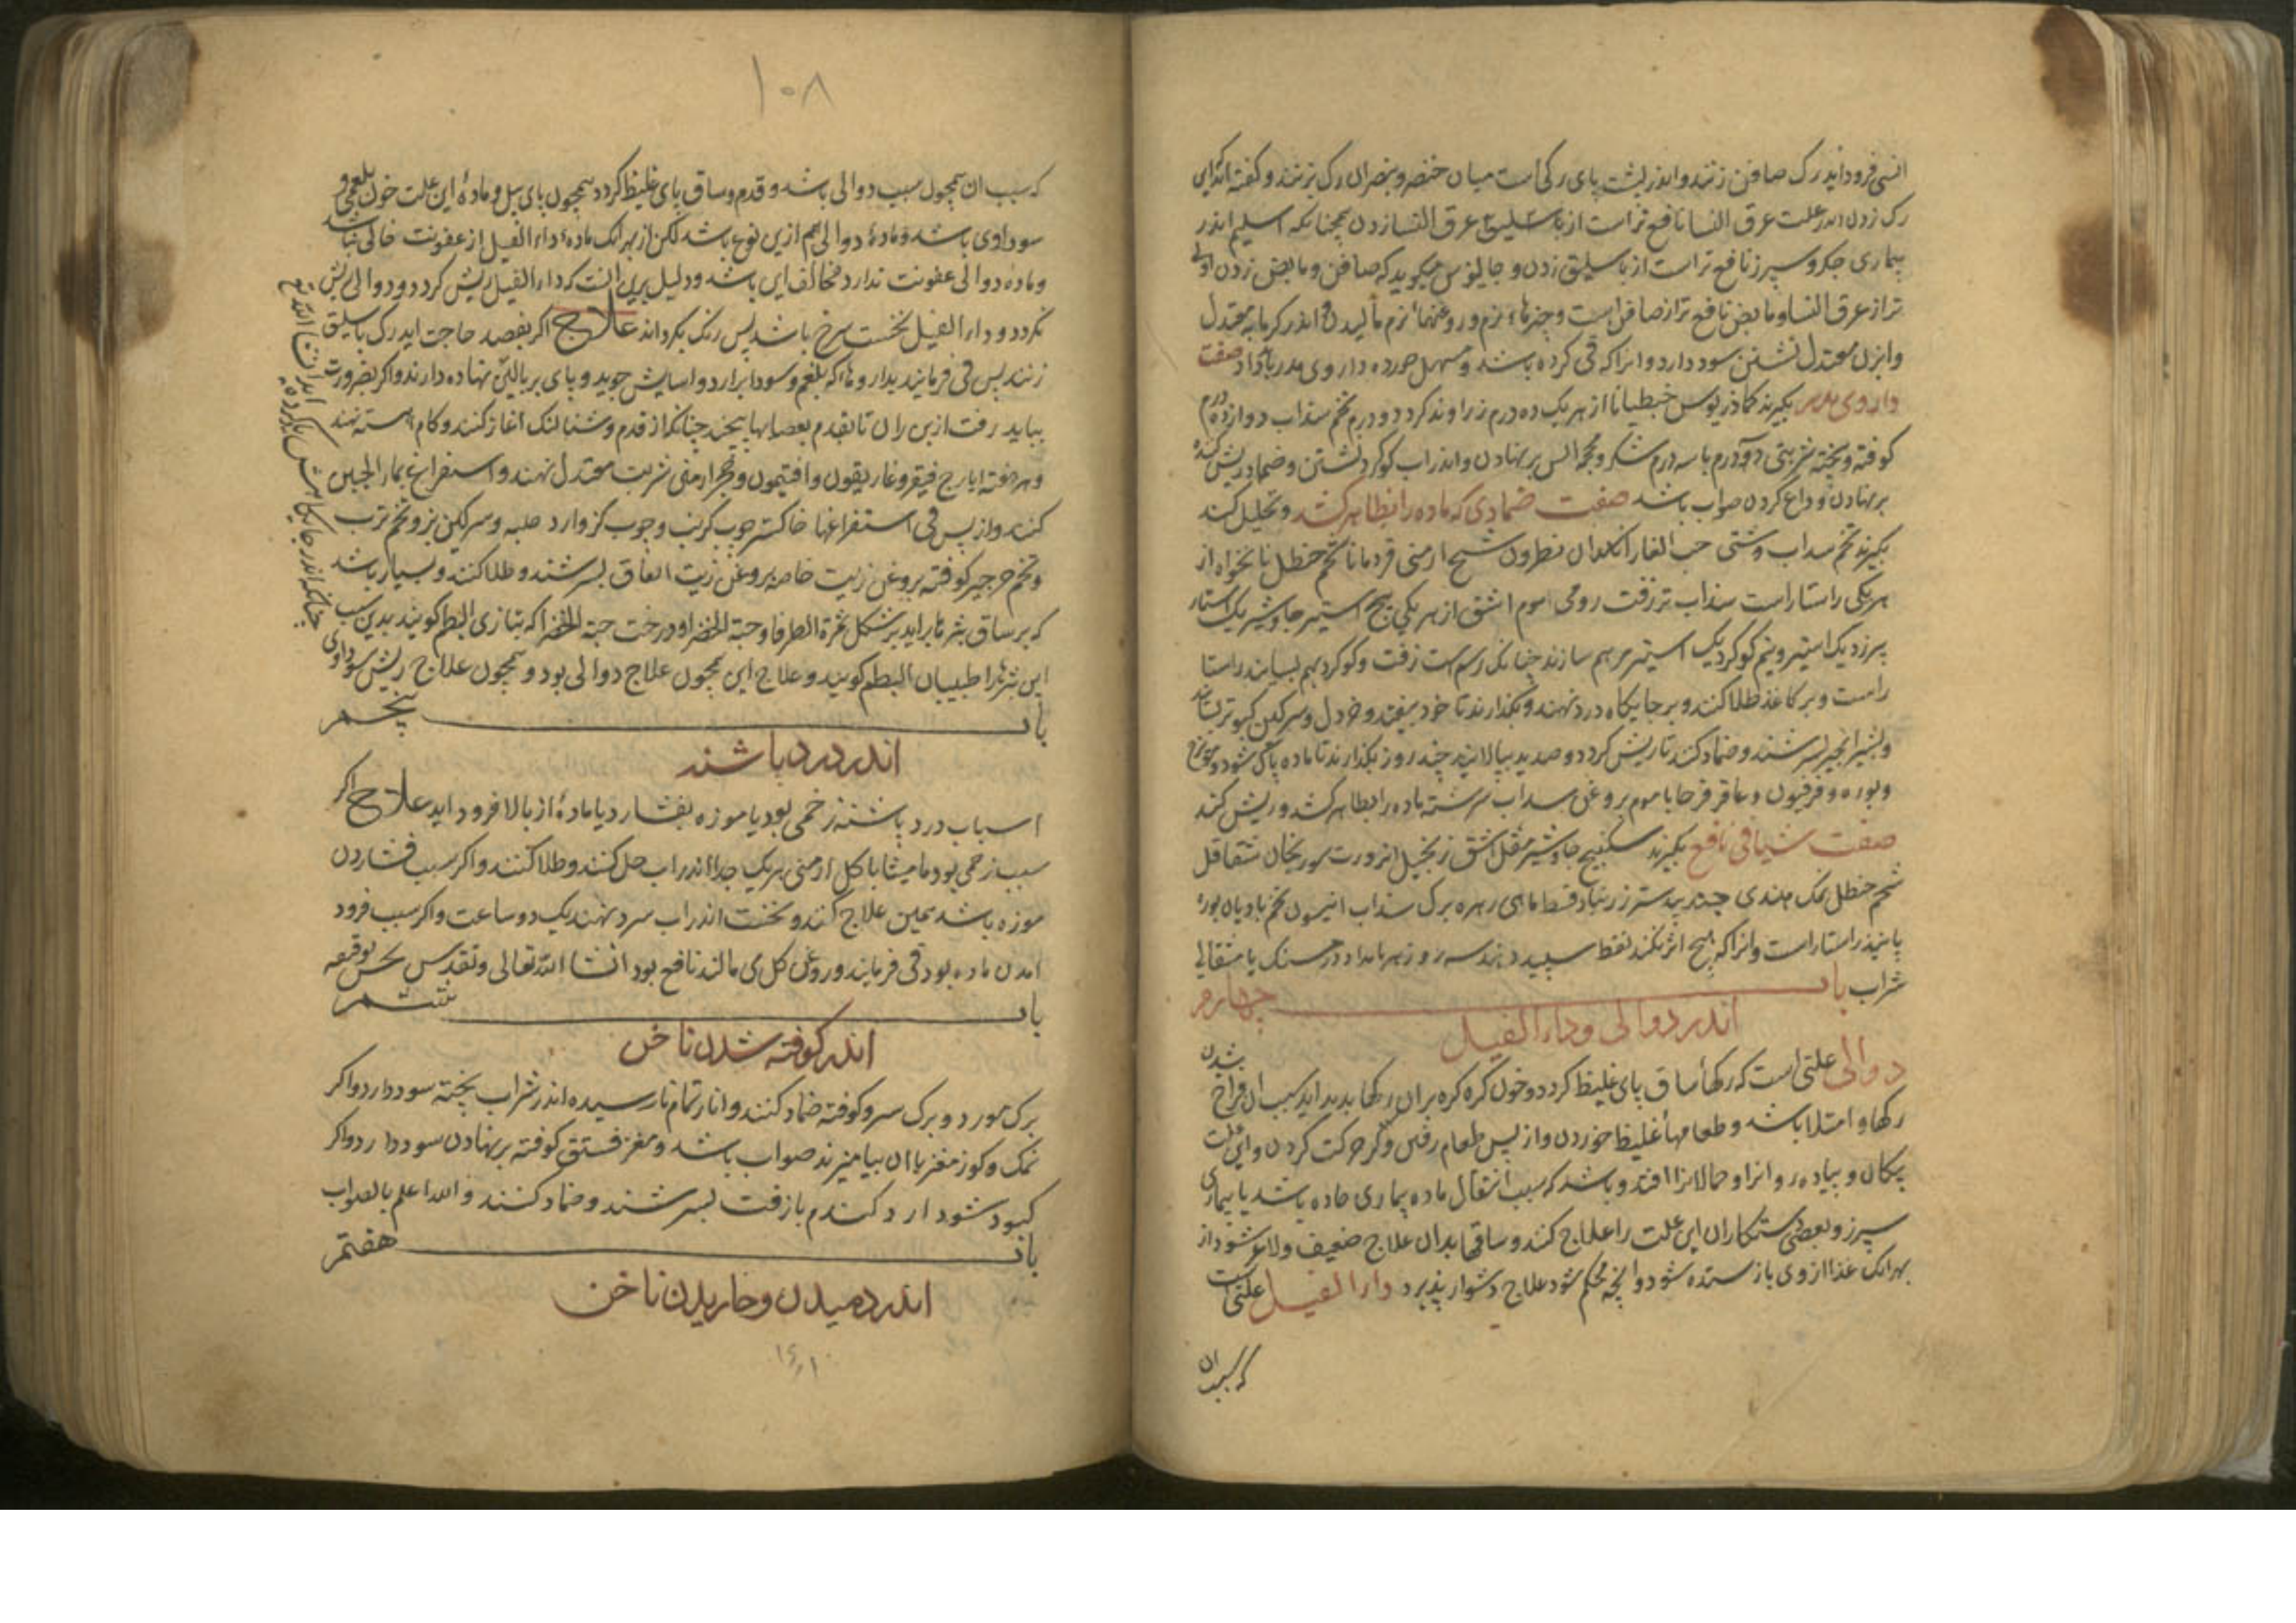 انسی فرود اید رک صافن زنند و اندر پشت پای رکی است میان خنصر و بنصر ان رک بزنند و کفته اند کی این
رک زدن اندر علت عرق النسا نافع تر است از باسلیق و عرق النسا زدن همچنانکه اسیلم اندر
بیماری جکر و سپرز نافع تر است از باسلیق زدن و جالینوس میکوید که صافن و مابض زدن اولی
تر از عرق النسا و مابض نافع تر از صافن است و چیزهاء نرم و روغنهاء نرم مالیدن و اندر کرمابه معتدل
و ابزن معتدل نشستن سود دارد و انرا که قی کرده باشد و مسهل خورده داروی مدر باید داد صفت
داروی مدر بکیرند کماذریوس جنطیانا از هر یک ده درم زراوند کرد دو درم تخم سداب دوازده درم
کوفته و بیخته شربتی دو درم با سه درم شکر و محجمه السر بر نهادن و اندر اب کوکرد نشستن و ضماد ریش کننده
بر نهادن و داغ کردن صواب باشد صفت ضمادی که ماده را بظاهر کشد و تحلیل کند
بکیرند تخم سداب دشتی حب الغار انکدان نطرون شیح ارمنی قردمانا تخم حنظل نانخواه از
هر یکی راستا راست سداب تر زفت رومی موم اشق از هر یکی پنج استیر جاوشیر یک استار
بیرزد یک استیر و نیم کوکرد یک استیر مرهم سازند چنانک رسم است زفت و کوکرد بهم بسایند راستا
راست و بر کاغذ طلا کنند و بر جایکاه درد نهند و بکذارند تا خود بیفتد و خردل و سرکین کبوتر بستانند
و بشیر انجیر بسرشند و ضماد کنند تا ریش کردد و صدید بپالاید چند روز بکذارند تا ماده پاک شود و مویزج
و بوره و فرفیون و عاقرقرحا با موم بروغن سداب سرشته ماده را بظاهر کشد و ریش کند
صفت شیافی نافع بکیرند سکبینج جاوشیر مقل اشق زنجبیل انزروت سورنجان شقاقل
شحم حنظل نمک هندی جندبیدستر زرنباد قسط ماهی زهره برک سداب انیسون تخم بادیان بوره
پانیذ راستا راست و انرا که هیچ اثر نکند نفط سپید دهند سه روز هر بامداد درمسنک یا مثقالی
شراب باب چهارم
اندر دوالی و داء الفیل
دوالی علتی است که رکهاء ساق پای غلیظ کردد و خون کره کره بران رکها پدید اید سبب ان فراخ شدن
رکها و امتلا باشد و طعامهاء غلیظ خوردن و از پس طعام رفتن و کر حرکت کردن و این علت
پیکان و پیاده روانرا و حمالانرا افتد و باشد که سبب انتقال ماده بیماری حاده باشد یا بیماری
سپرز و بعضی دستکاران این علت را علاج کنند و ساقها بدان علاج ضعیف و لاغر شود از
بهر انک غذا از وی باز ستده شود و انچه محکم شود علاج دشوار پذیرد داء الفیل علتی است
که سبب ان
۱۰۸
که سبب ان همچون سبب دوالی باشد و قدم و ساق پای غلیظ کردد همچون پای پیل و مادهٔ این علت خون بلغمی و
سوداوی باشد و مادهٔ دوالی هم ازین نوع باشد لکن از بهر انک مادهٔ داء الفیل از عفونت خالی نباشد
و ماده دوالی عفونت ندارد مخالف این باشد و دلیل برین انست که داء الفیل ریش کردد و دوالی ریش
نکردد و داء الفیل نخست سرخ باشد پس رنک بکرداند علاج اکر بفصد حاجت اید رک باسلیق
زنند پس قی فرمایند بداروها که بلغم و سودا برارد و اسایش جوید و پای بر بالین نهاده دارند و اکر بضرورت
بباید رفت از بن ران تا بقدم بعصابها بپیچند چنانکه از قدم و شتالنک اغاز کنند و کام اهسته نهند
و هر هفته ایارج فیقرا و غاریقون و افتیمون و حجر ارمنی شربت معتدل نهند و استفراغ بماء الجبن
کنند و از پس قی استفراغها خاکستر چوب کرنب و چوب کز و ارد حلبه و سرکین بز و تخم ترب
و تخم جرجیر کوفته بروغن زیت خاصه بروغن زیت انفاق بسرشند و طلا کنند و بسیار باشد
که بر ساق بثرها براید بر شکل ثمرة الطرفا و حبة الخضرا و درخت حبة الخضرا که بتازی البطم کویند بدین سبب
این بثرها را طبیبان البطم کویند و علاج این همچون علاج دوالی بود و همچون علاج ریش سوداوی
چنانکه اندر جایکاهش یاد کرده اید ان شا الله تع
باب پنجم
اندر درد پاشنه
اسباب درد پاشنه زخمی بود یا موزه بفشارد یا مادهٔ از بالا فرود اید علاج اکر
سبب زخمی بود مامیثا با کل ارمنی هر یک جدا اندر اب حل کنند و طلا کنند و اکر سبب فشاردن
موزه باشد همین علاج کنند و نخست اندر اب سرد نهند یک دو ساعت و اکر سبب فرود
امدن ماده بود قی فرمایند و روغن کل می مالند نافع بود انشا الله تعالی و تقدس بحسن توفیقه
باب ششم
اندر کوفته شدن ناخن
برک مورد و برک سرو کوفته ضماد کنند و انار تمام نارسیده اندر شراب پخته سود دارد و اکر
نمک و کوز مغز با ان بیامیزند صواب باشد و مغز فستق کوفته بر نهادن سود دارد و اکر
کبود شود ارد کندم با زفت بسرشند و ضماد کنند و الله اعلم بالصواب
باب هفتم
اندر دمیدن و خاریدن ناخن